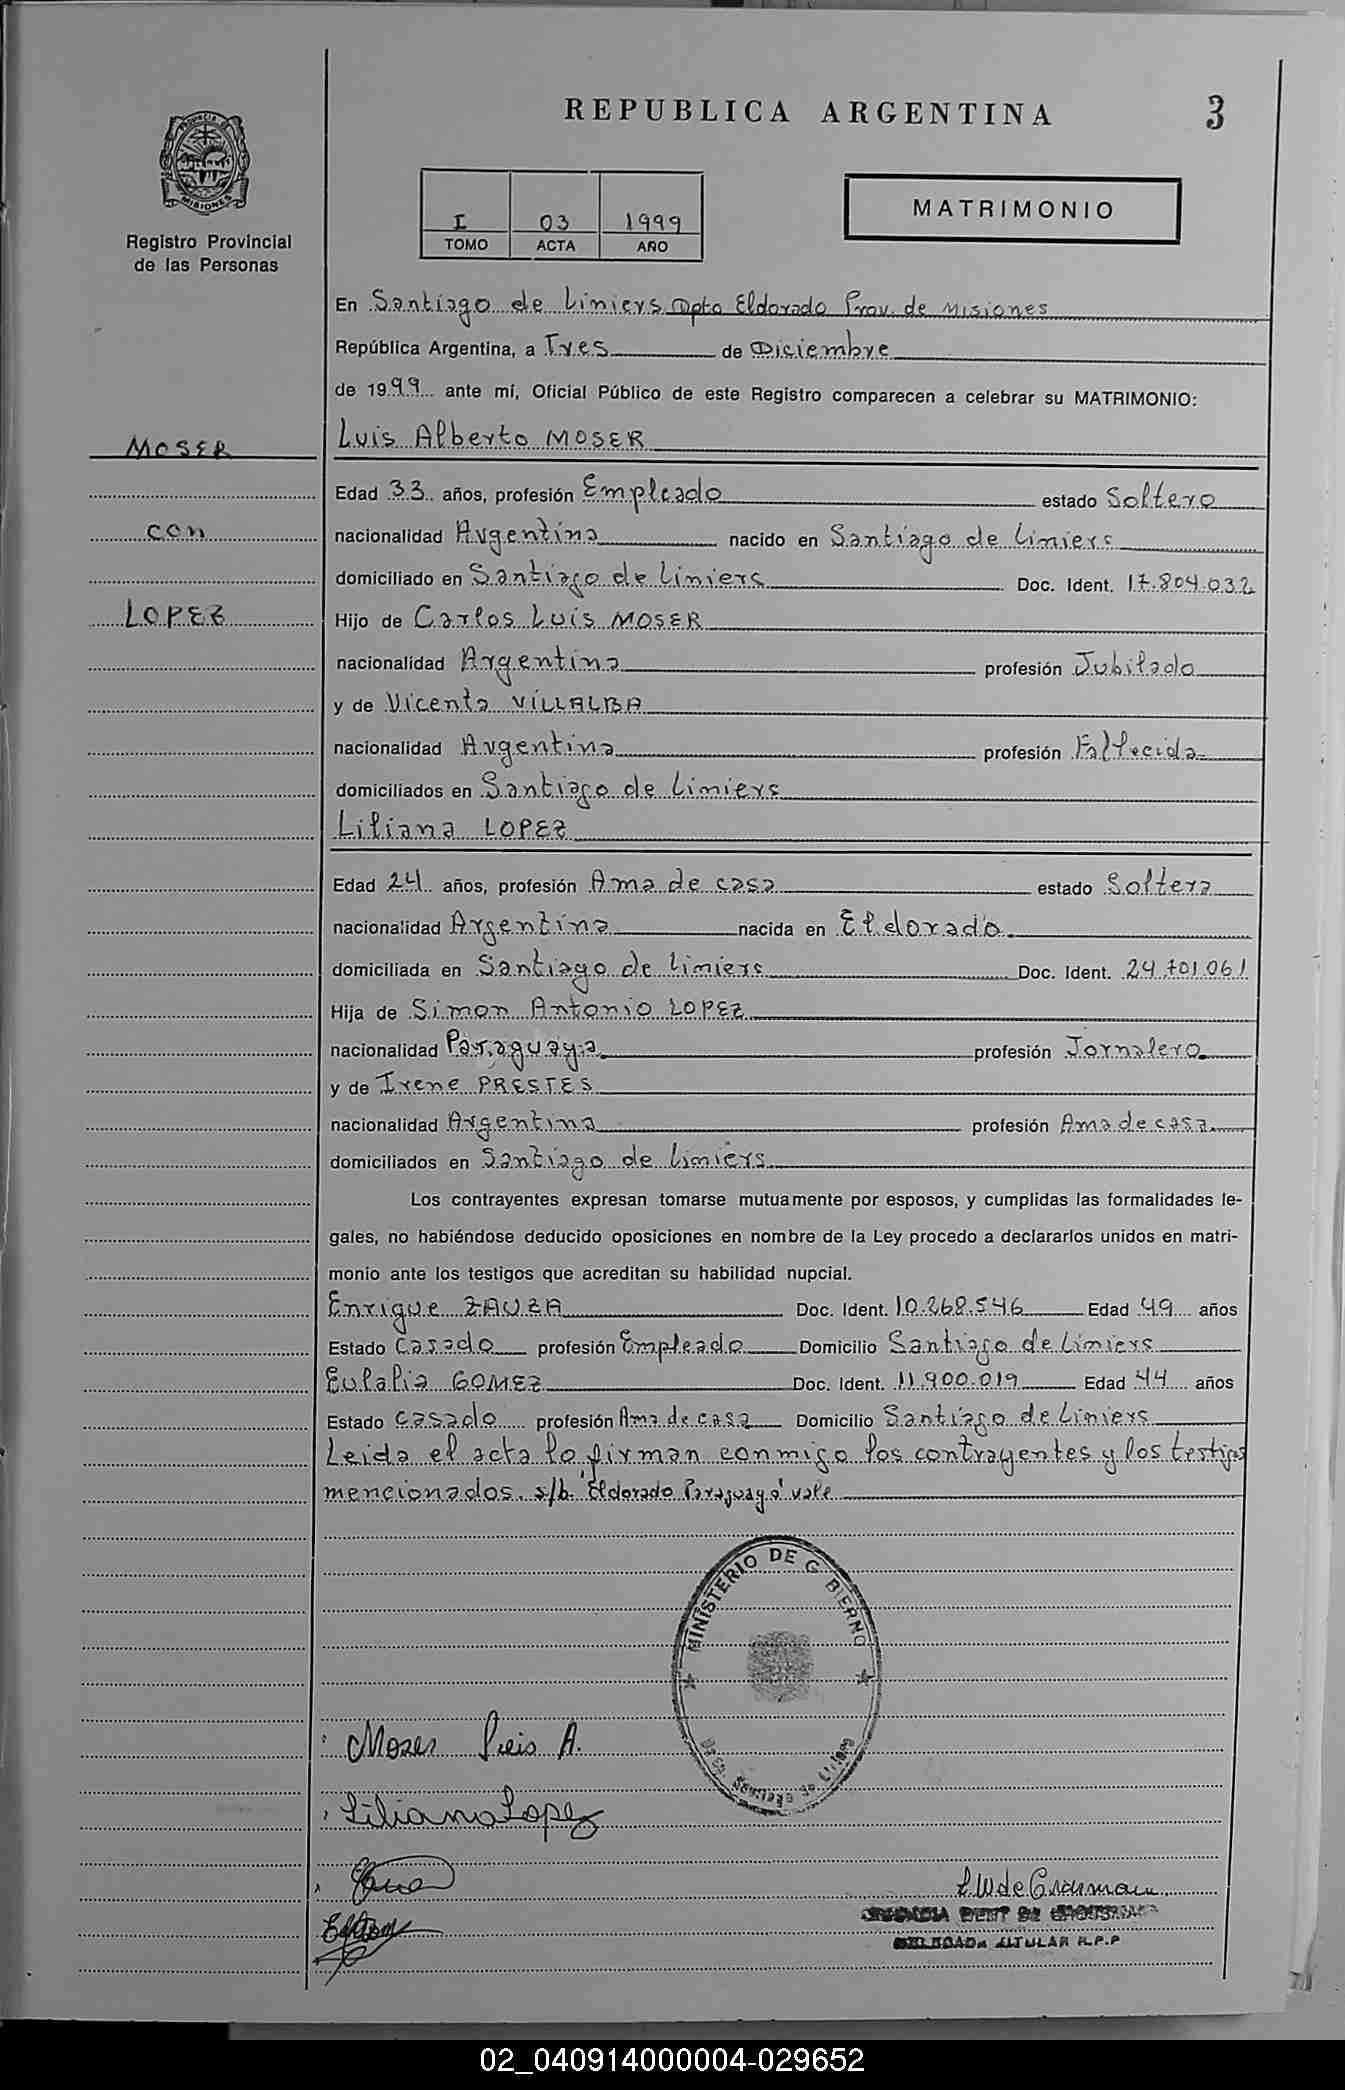 REPUBLICA ARGENTINA
3
PROVINCIA DE
MISIONES
Registro Provincial
de las Personas
I 03 1999
TOMO ACTA AÑO
MATRIMONIO
En Santiago de Liniers Dpto Eldorado Prov. de Misiones
República Argentina, a Tres de Diciembre
de 1999 ante mí, Oficial Público de este Registro comparecen a celebrar su MATRIMONIO:
MOSER
con
LOPEZ
Luis Alberto MOSER
Edad 33 años, profesión Empleado estado Soltero
nacionalidad Argentina nacido en Santiago de Liniers
domiciliado en Santiago de Liniers Doc. Ident. 17.804.032
Hijo de Carlos Luis MOSER
nacionalidad Argentina profesión Jubilado
y de Vicenta VILLALBA
nacionalidad Argentina profesión Fallecida
domiciliados en Santiago de Liniers
Liliana LOPEZ
Edad 24 años, profesión Ama de casa estado Soltera
nacionalidad Argentina nacida en Eldorado.
domiciliada en Santiago de Liniers Doc. Ident. 24.701.061
Hija de Simon Antonio LOPEZ
nacionalidad Paraguaya profesión Jornalero
y de Irene PRESTES
nacionalidad Argentina profesión Ama de casa
domiciliados en Santiago de Liniers
Los contrayentes expresan tomarse mutuamente por esposos, y cumplidas las formalidades le-
gales, no habiéndose deducido oposiciones en nombre de la Ley procedo a declararlos unidos en matri-
monio ante los testigos que acreditan su habilidad nupcial.
Enrique ZAUZA Doc. Ident. 10.268.546 Edad 49 años
Estado Casado profesión Empleado Domicilio Santiago de Liniers
Eulalia GOMEZ Doc. Ident. 11.900.019 Edad 44 años
Estado Casado profesión Ama de casa Domicilio Santiago de Liniers
Leida el acta lo firman conmigo los contrayentes y los testigos
mencionados. s/b. "Eldorado Paraguayo" vale
MINISTERIO DE G BIERNO
Santiago de Liniers
Moser Luis A.
Liliana Lopez
TITULAR R.P.P
02_040914000004-029652